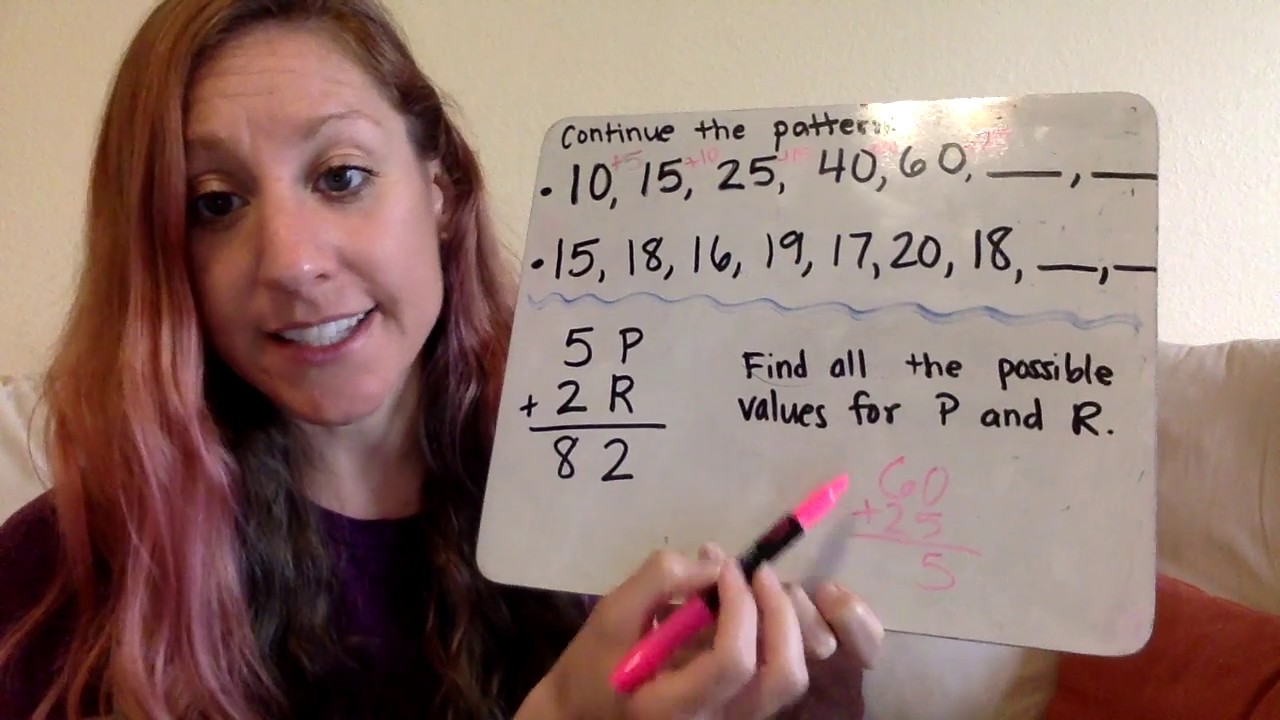 Continue the pattern.
+5 +10 +15 +25
• 10, 15, 25, 40, 60, ___, ___
• 15, 18, 16, 19, 17, 20, 18, ___, ___
5 P
+ 2 R
8 2
Find all the possible
values for P and R.
60
+25
5